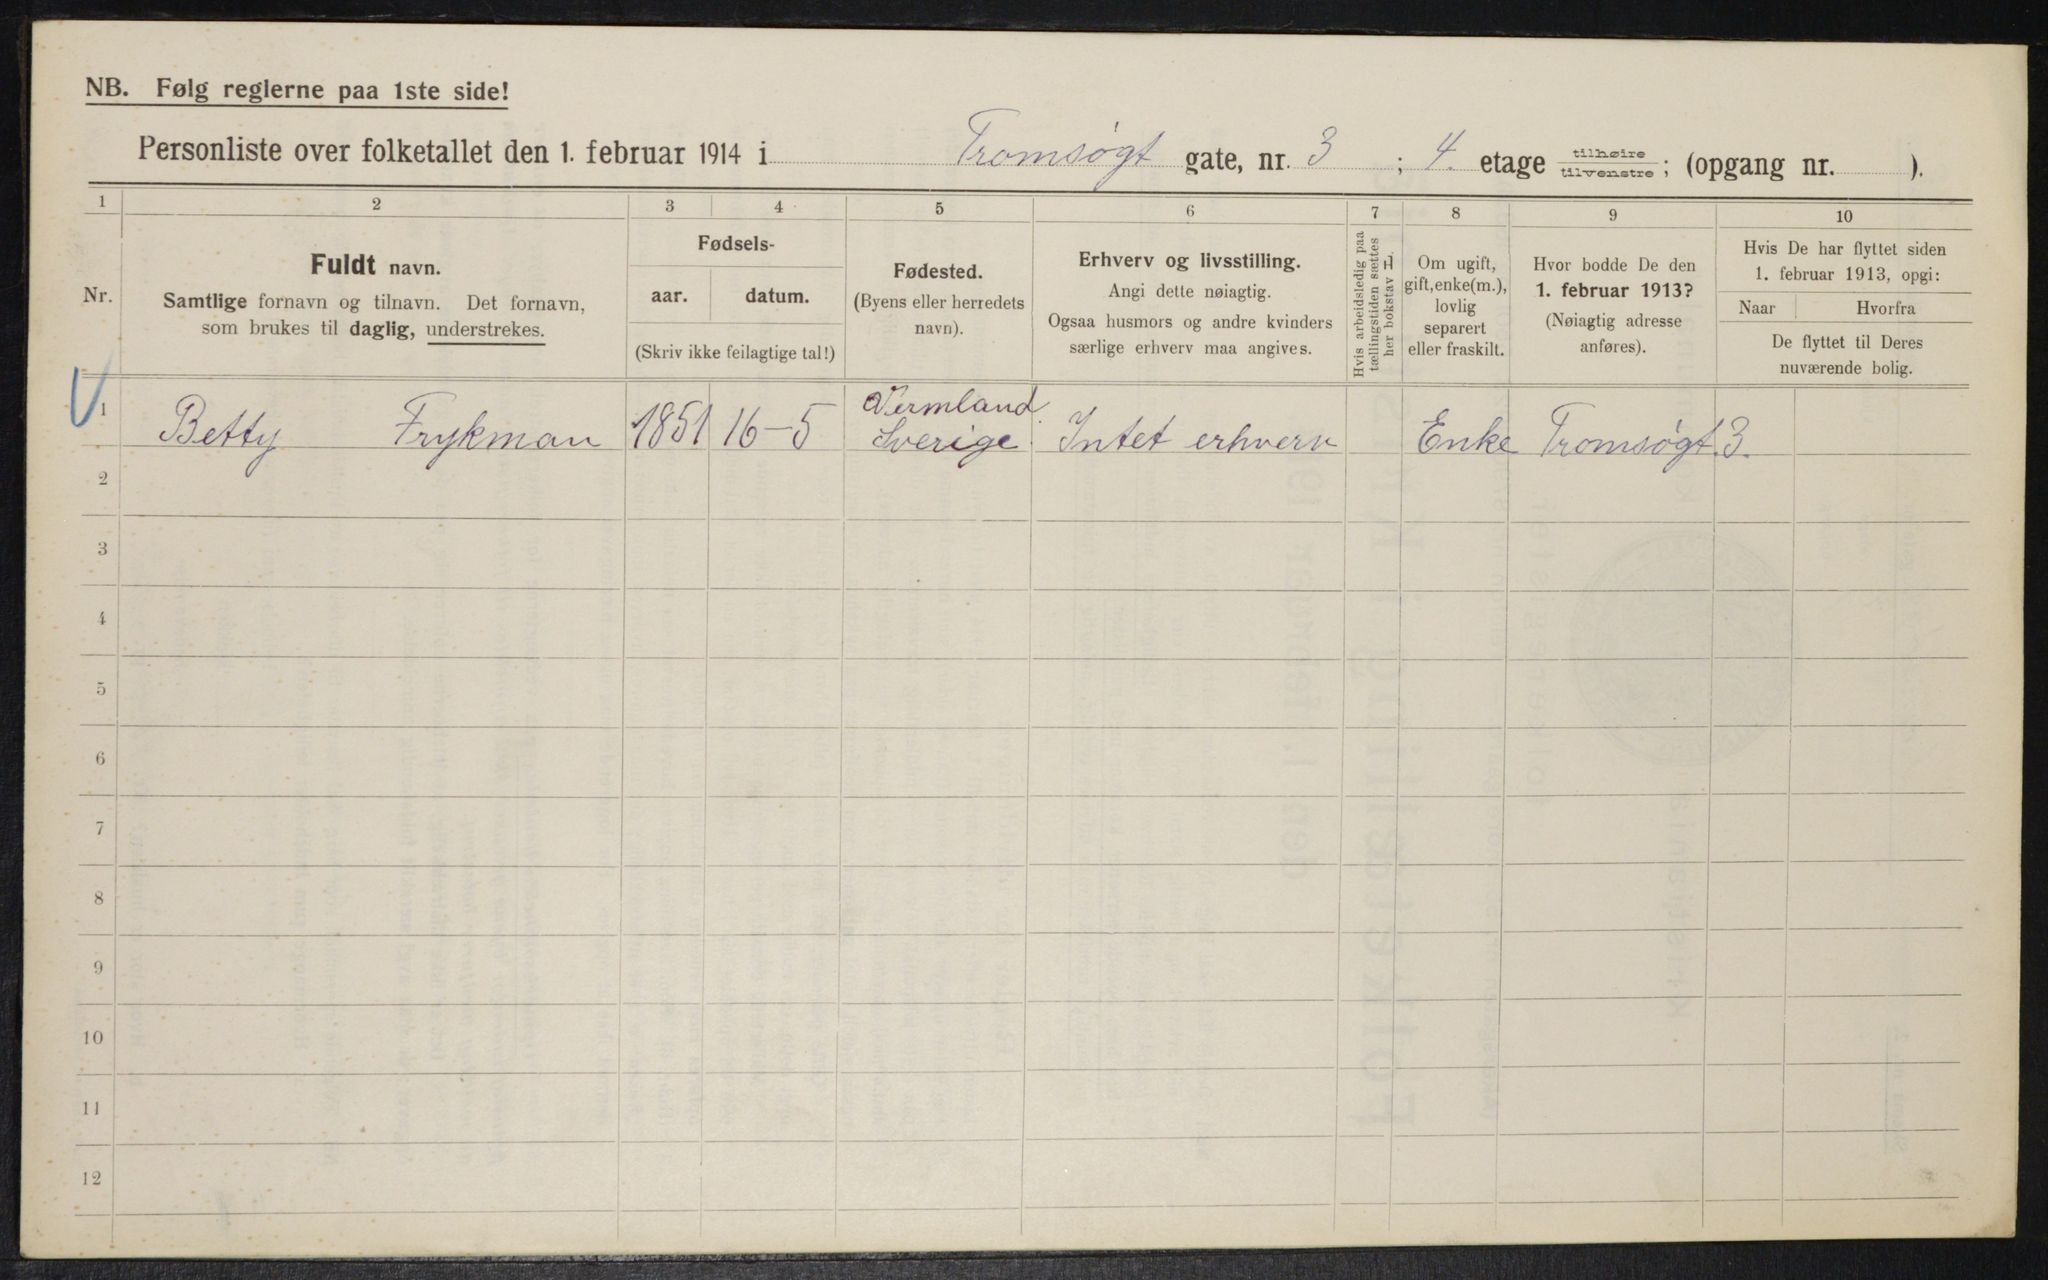 NB. Følg reglerne paa 1ste side!
Personliste over folketallet den 1. februar 1914 i Tromsøgt gate, nr. 3 ; 4. etage tilhøire tilvenstre ; (opgang nr. ).
1 2 3 4 5 6 7 8 9 10
Nr.
Fuldt navn.
Samtlige fornavn og tilnavn. Det fornavn,
som brukes til daglig, understrekes.
Fødsels-
aar. datum.
(Skriv ikke feilagtige tal!)
Fødested.
(Byens eller herredets
navn).
Erhverv og livsstilling.
Angi dette nøiagtig.
Ogsaa husmors og andre kvinders
særlige erhverv maa angives.
Hvis arbeidsledig paa
tællingstiden sættes
her bokstav L
Om ugift,
gift, enke(m.),
lovlig
separert
eller fraskilt.
Hvor bodde De den
1. februar 1913?
(Nøiagtig adresse
anføres).
Hvis De har flyttet siden
1. februar 1913, opgi:
Naar Hvorfra
De flyttet til Deres
nuværende bolig.
1 Betty Frykman 1851 16-5 Vermland Sverige Intet erhverv Enke Tromsøgt. 3.
2
3
4
5
6
7
8
9
10
11
12